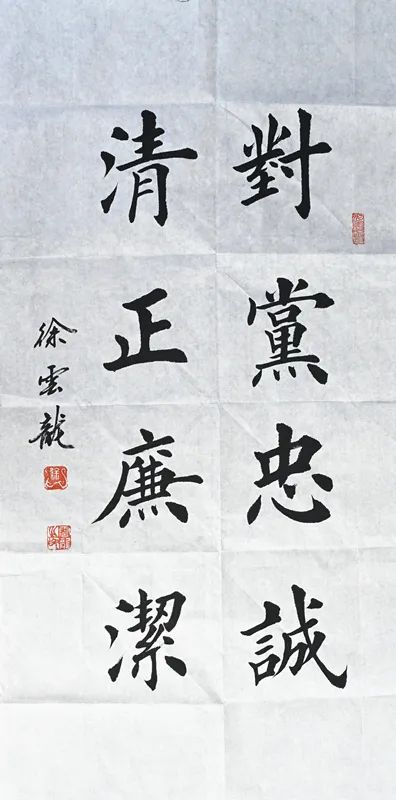 對黨忠誠
清正廉潔
徐雲龍